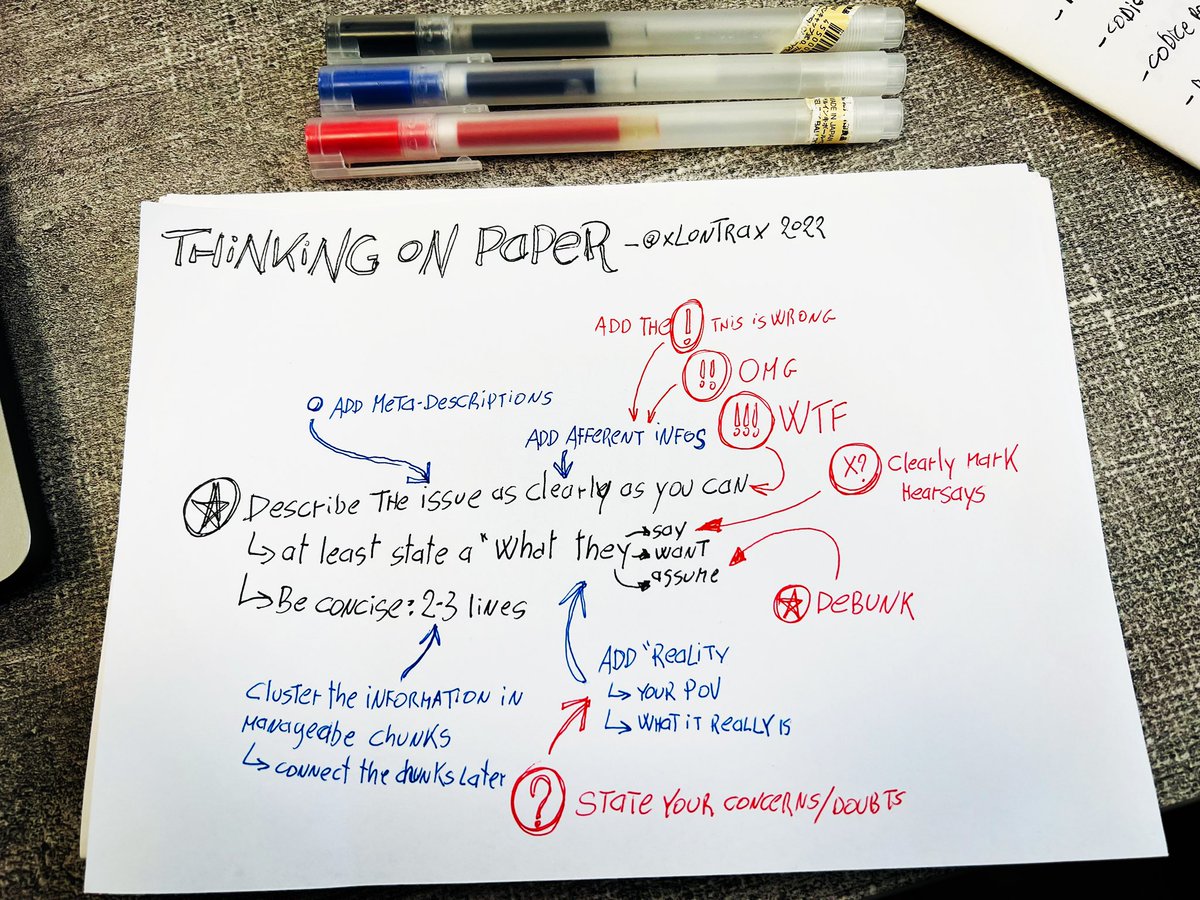 THiNKiNG ON PAPER -@xLONTRAX 2022
ADD THE ! THIS iS WRONG
!! OMG
!!! WTF
ADD META-DESCRIPTIONS
ADD AFFERENT iNFOS
X? Clearly MARK
HEARSAYS
Describe THE issue as clearly as you can
↳ at least state a "What they → say
→ WANT
→ assume
↳ Be concise: 2-3 lines
DEBUNK
ADD "REALITY
↳ YOUR POV
↳ WHAT iT REALLY iS
CLUSTER THE iNFORMATION IN
MANAGEABE CHUNKS
↳ CONNECT THE CHUNKS LATER
? STATE YOUR CONCERNS/DOUBTS
MADE IN JAPAN
- CODICE